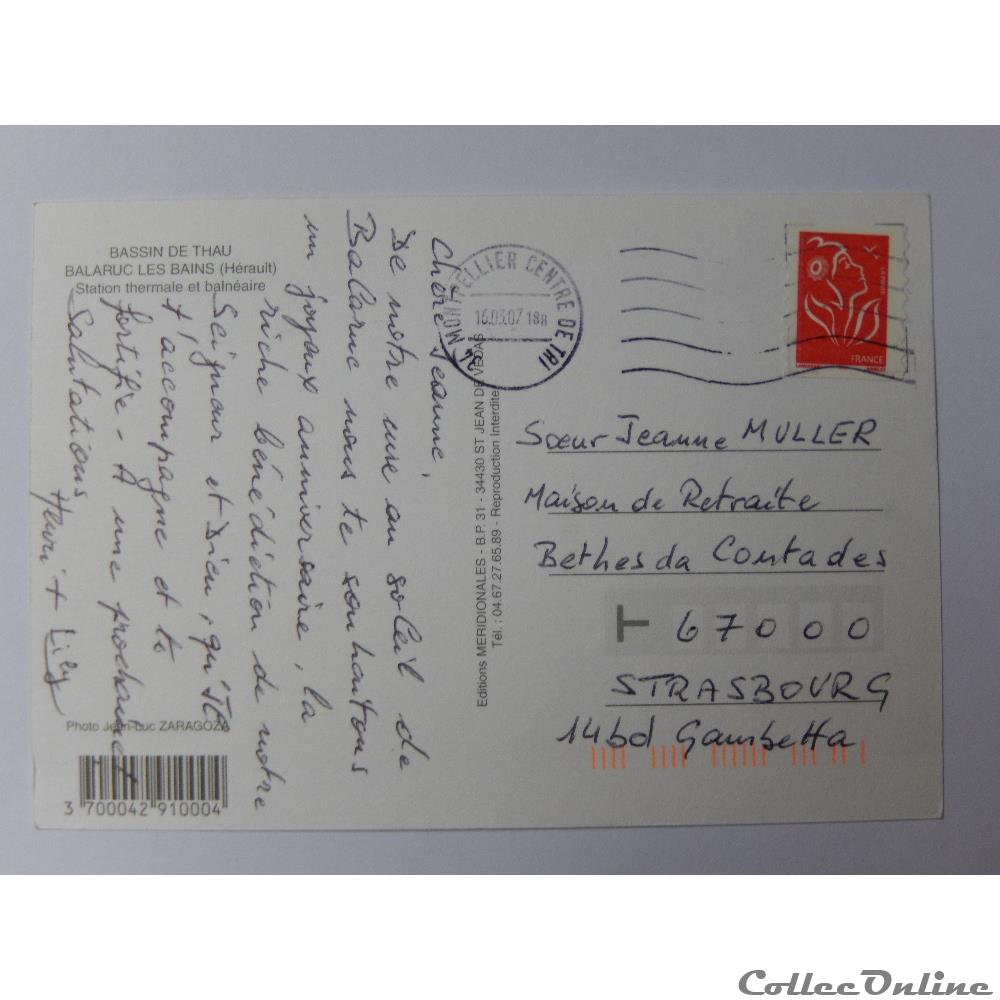 BASSIN DE THAU
BALARUC LES BAINS (Hérault)
Station thermale et balnéaire
Chère Jeanne,
De notre cure au soleil de
Balaruc nous te souhaitons
un joyeux anniversaire, la
riche bénédiction de notre
Seigneur et Dieu, qu'Il
t'accompagne et te
fortifie - A une prochaine
Salutations
Henri + Lily
Photo Jean-Luc ZARAGOZA
3 700042 910004
Editions MERIDIONALES - B.P. 31 - 34430 ST JEAN DE VEDAS
Tél. : 04.67.27.65.89 - Reproduction Interdite
34 MONTPELLIER CENTRE DE TRI
16.05.07 18H
FRANCE
Sœur Jeanne MULLER
Maison de Retraite
Bethesda Contades
T 67000
STRASBOURG
14bd Gambetta
CollecOnline